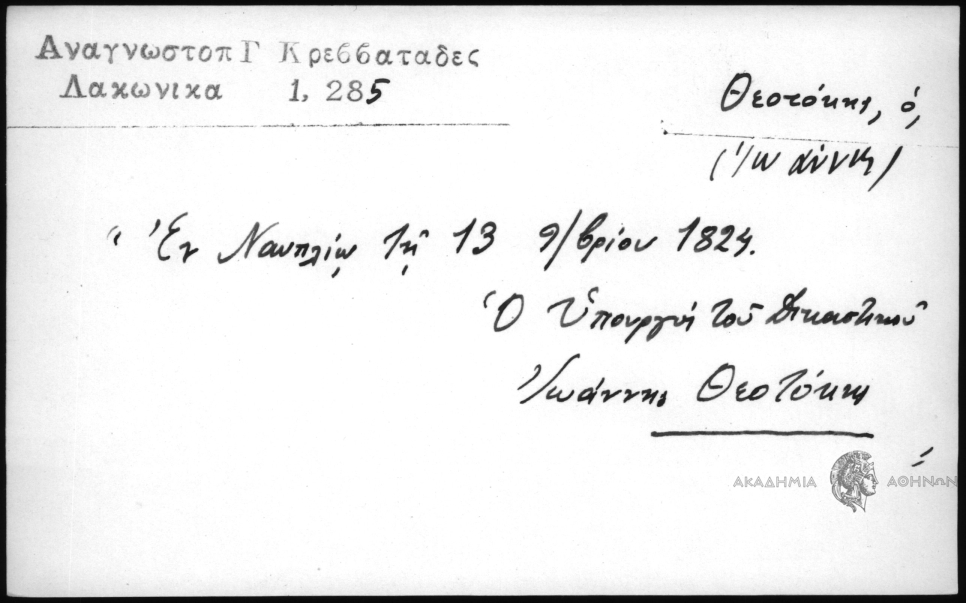 Αναγνωστοπ Γ Κρεββαταδες
Λακωνικα 1, 285
Θεοτόκης, ὁ,
(Ἰωάννης)
" Ἐν Ναυπλίῳ τῇ 13 9/βρίου 1824.
Ὁ Ὑπουργός τοῦ Δικαστικοῦ
Ἰωάννης Θεοτόκης
"
ΑΚΑΔΗΜΙΑ ΑΘΗΝΩΝ